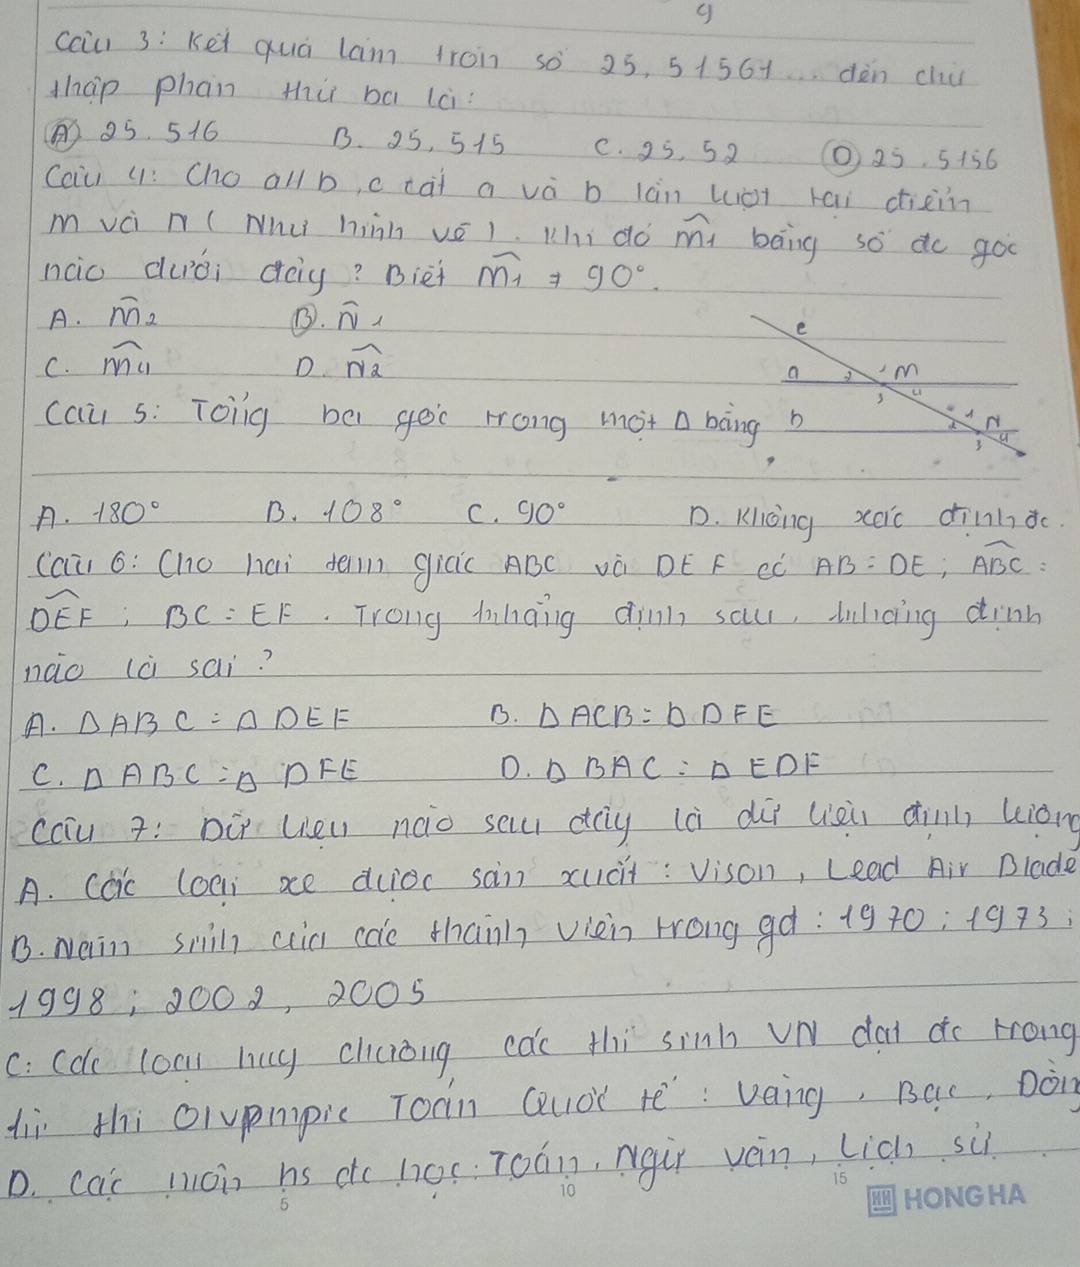 g
Câu 3: Kết quả làm tròn số 25,51561... đến chữ
thập phân thứ ba là:
A) 25.516 B. 25,515 C. 25,52 D) 25.5156
Câu 4: Cho a//b, c cắt a và b lần lượt tại điểm
m và N (Như hình vẽ). Khi đó m̂1 bằng số đc góc
nào dưới đây? Biết m̂1 ≠ 90°.
A. m̂2 B. N̂1
C. m̂4 D. N̂2
e
a 2 1 M
3 4
Câu 5: Tổng ba góc trong một Δ bằng
b 2 1 N
3 4
A. 180° B. 108° C. 90° D. Không xác định đc.
Câu 6: Cho hai tam giác ABC và DEF có AB = DE; ABC =
DEF; BC = EF. Trong khẳng định sau, khẳng định
nào là sai?
A. Δ ABC = Δ DEF B. Δ ACB = Δ DFE
C. Δ ABC = Δ DFE D. Δ BAC = Δ EDF
Câu 7: Dữ liệu nào sau đây là dữ liệu định lượng
A. Các loại xe được sản xuất: Vison, Lead Air Blade
B. Năm sinh của các thành viên trong gđ: 1970; 1973;
1998; 2002, 2005
C: Các loại huy chương các thí sinh VN đạt đc trong
kì thi Olvpmpic Toán Quốc tế: Vàng, Bạc, Đồng
D. Các môn hs đc học: Toán, Ngữ văn, Lịch sử
5 10 15
HH HONG HA